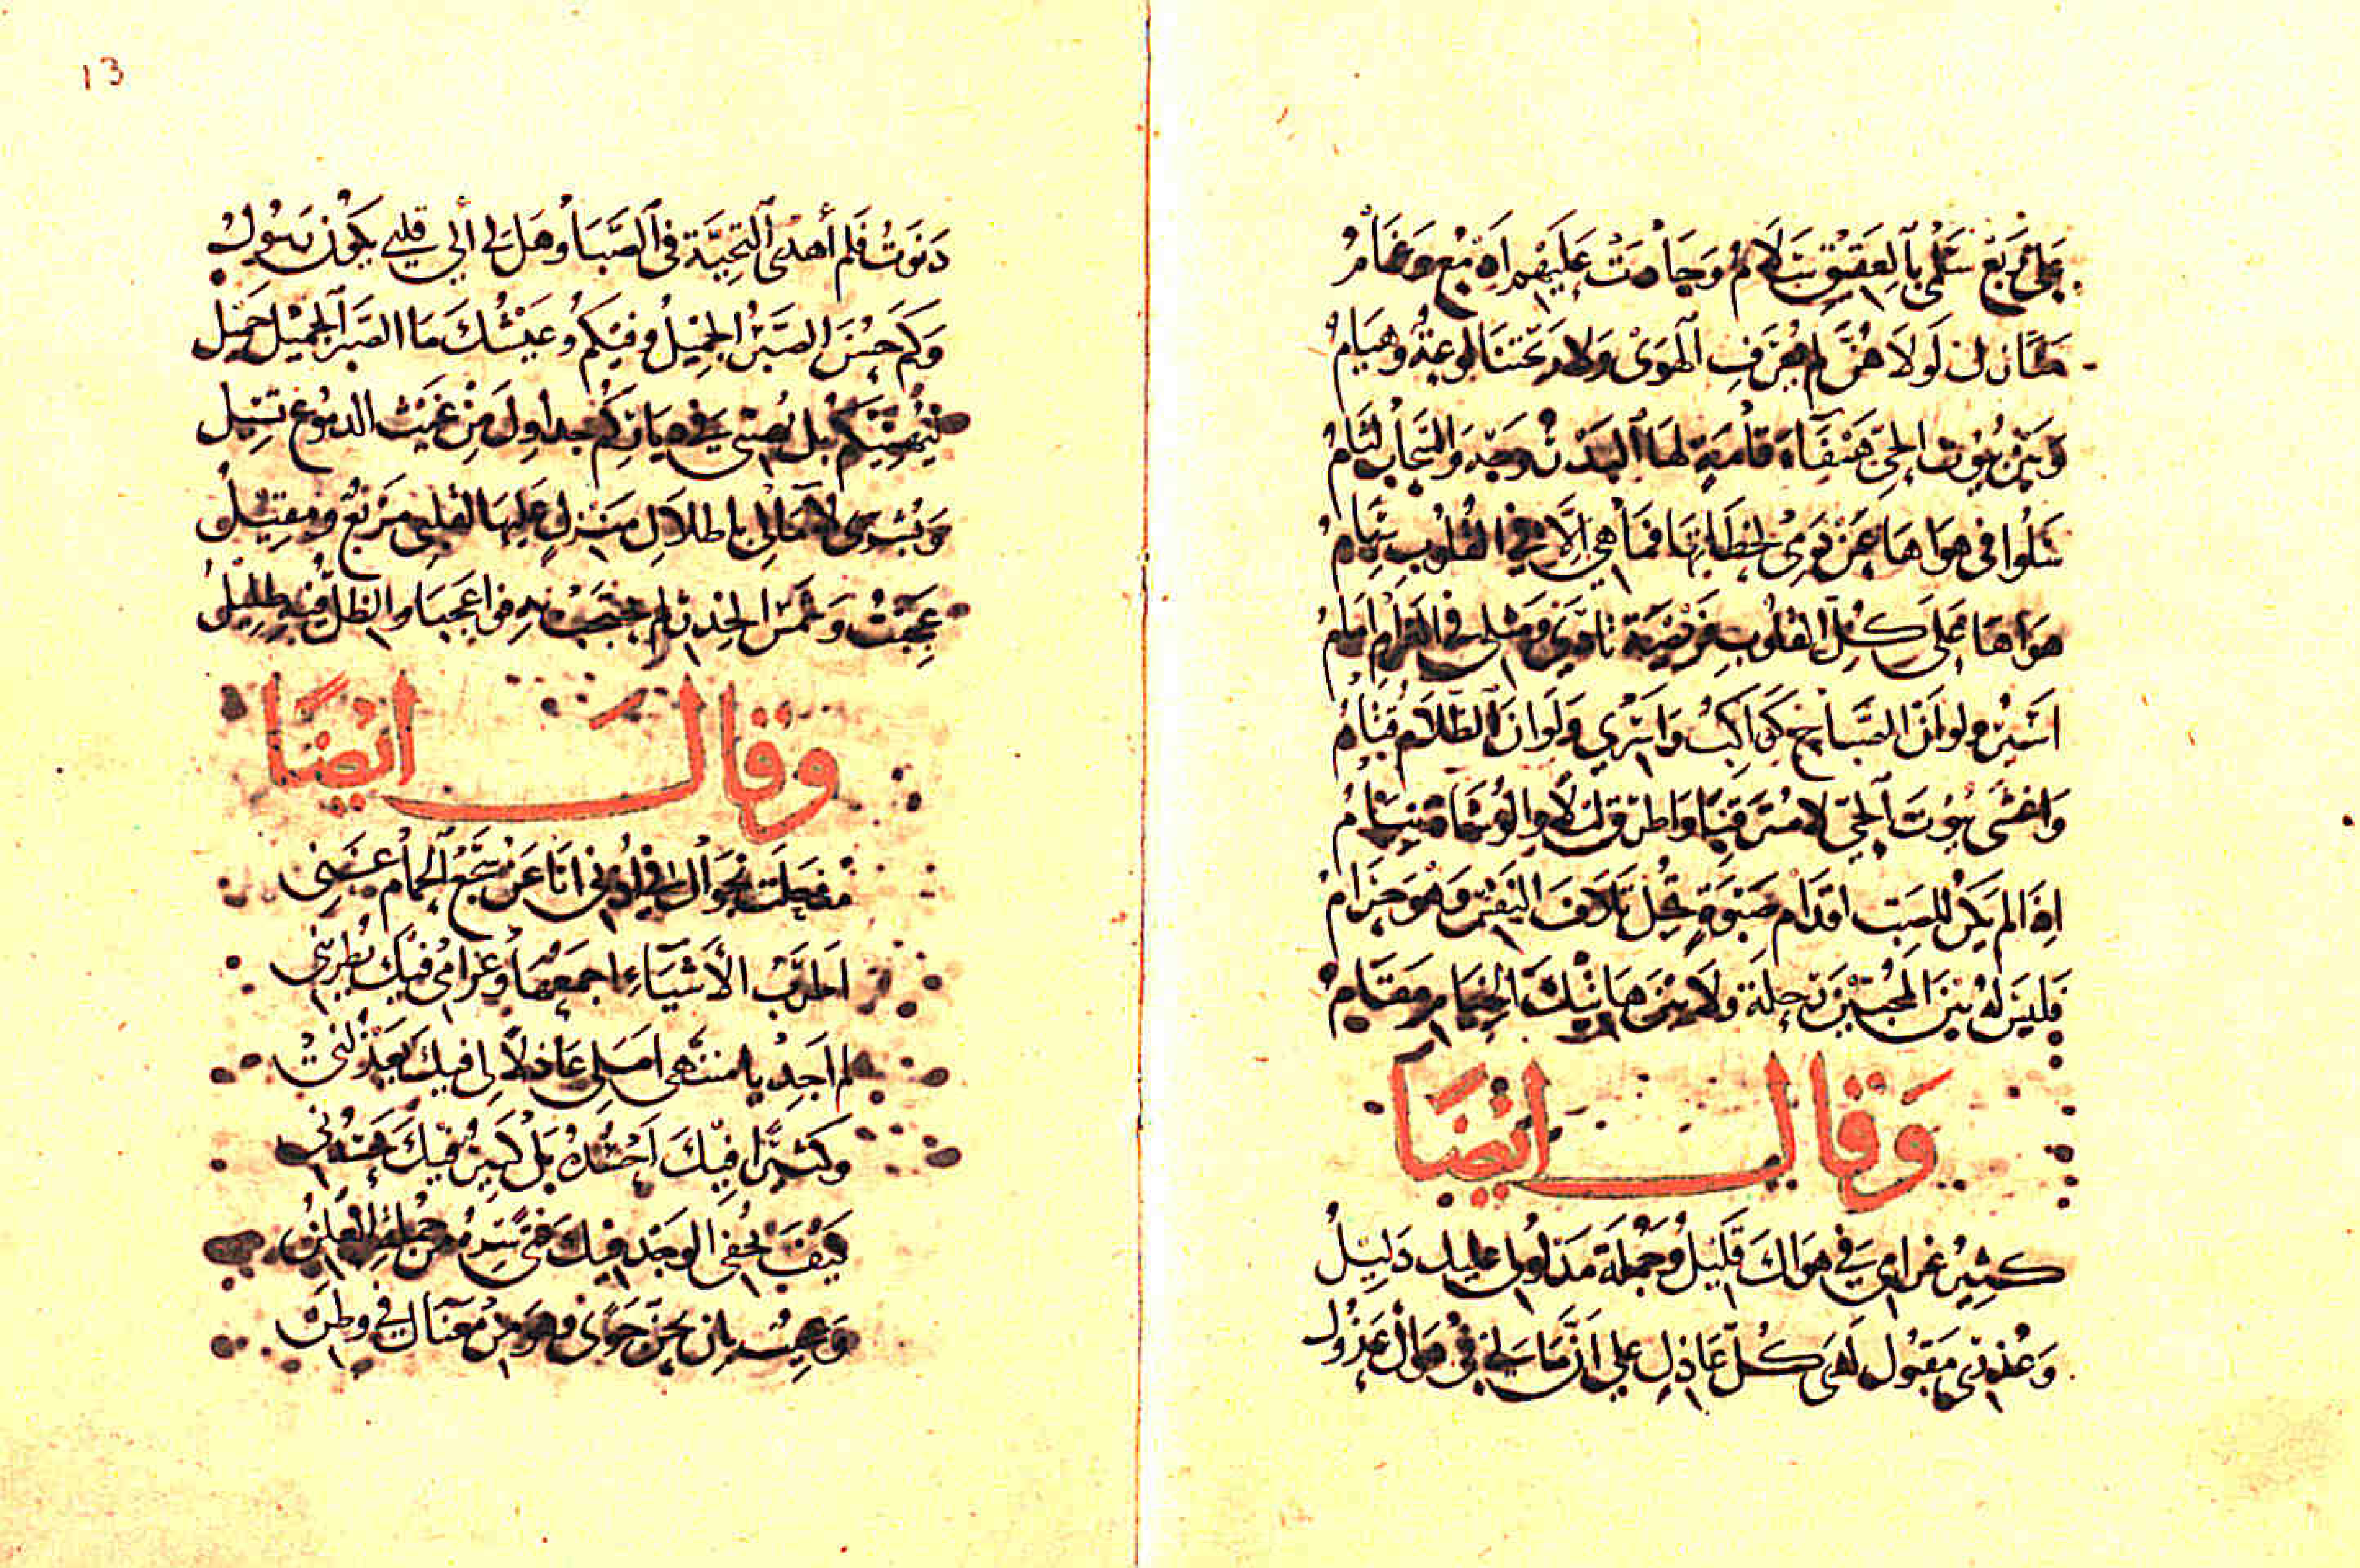 على ربع سلمى بالعقيق سلام وجادت عليهم ادمع وغمام
منازل لولاهن لم يعرف الهوى ولا دعتنا لوعة وهيام
وبين بيوت الحي هيفاء قامة لها البدر وجه والسحاب لثام
سلوا في هواها عن نوى لحظاتها فما هي الا في القلوب سهام
هواها على كل القلوب فريضة ومثلي في الغرام امام
اسير ولو ان الصباح كواكب واسري ولو ان الظلام قتام
واغشى بيوت الحي لا مترقبا واطرق ليلا والوشاة نيام
اذا لم يكن للصب اقدام صبوة تحل تلاف النفس وهو حرام
فليس له بين المحبين رحلة ولا بين هاتيك الخيام مقام
وقال ايضا
كثير غرامي في هواك قليل وجملة عليك دليل
وعذري مقبول لدى كل عاذل على ان مالي في هواك عذول
دنوت فلم أهدى التحية في الصبا وهل لي الي قلبي يكون رسول
وكم حسن الصبر الجميل وفيكم وعيشك ما الصبر الجميل جميل
بل في دياركم جداول من غيث الدموع تسيل
باطلال منزل عليها لقلبي مربع ومقيل
عجبت وشمس الخدر لم تحتجب به فواعجبا والظل فيه ظليل
وقال ايضا
مذ حلت نجواك في اذني انا عن سجع الحمام غني
اطرب الأشياء اجمعها وغرامي فيك يطربني
لم اجد يا منتهى املي عاذلا لي فيك يعذلني
وكثيرا فيك احسده بل كثير فيك يحسدني
كيف يخفى الوجد فيك فتى سره من جملة العلن
وعجيب بان يحن جوى وهو من مغناك في وطن
13